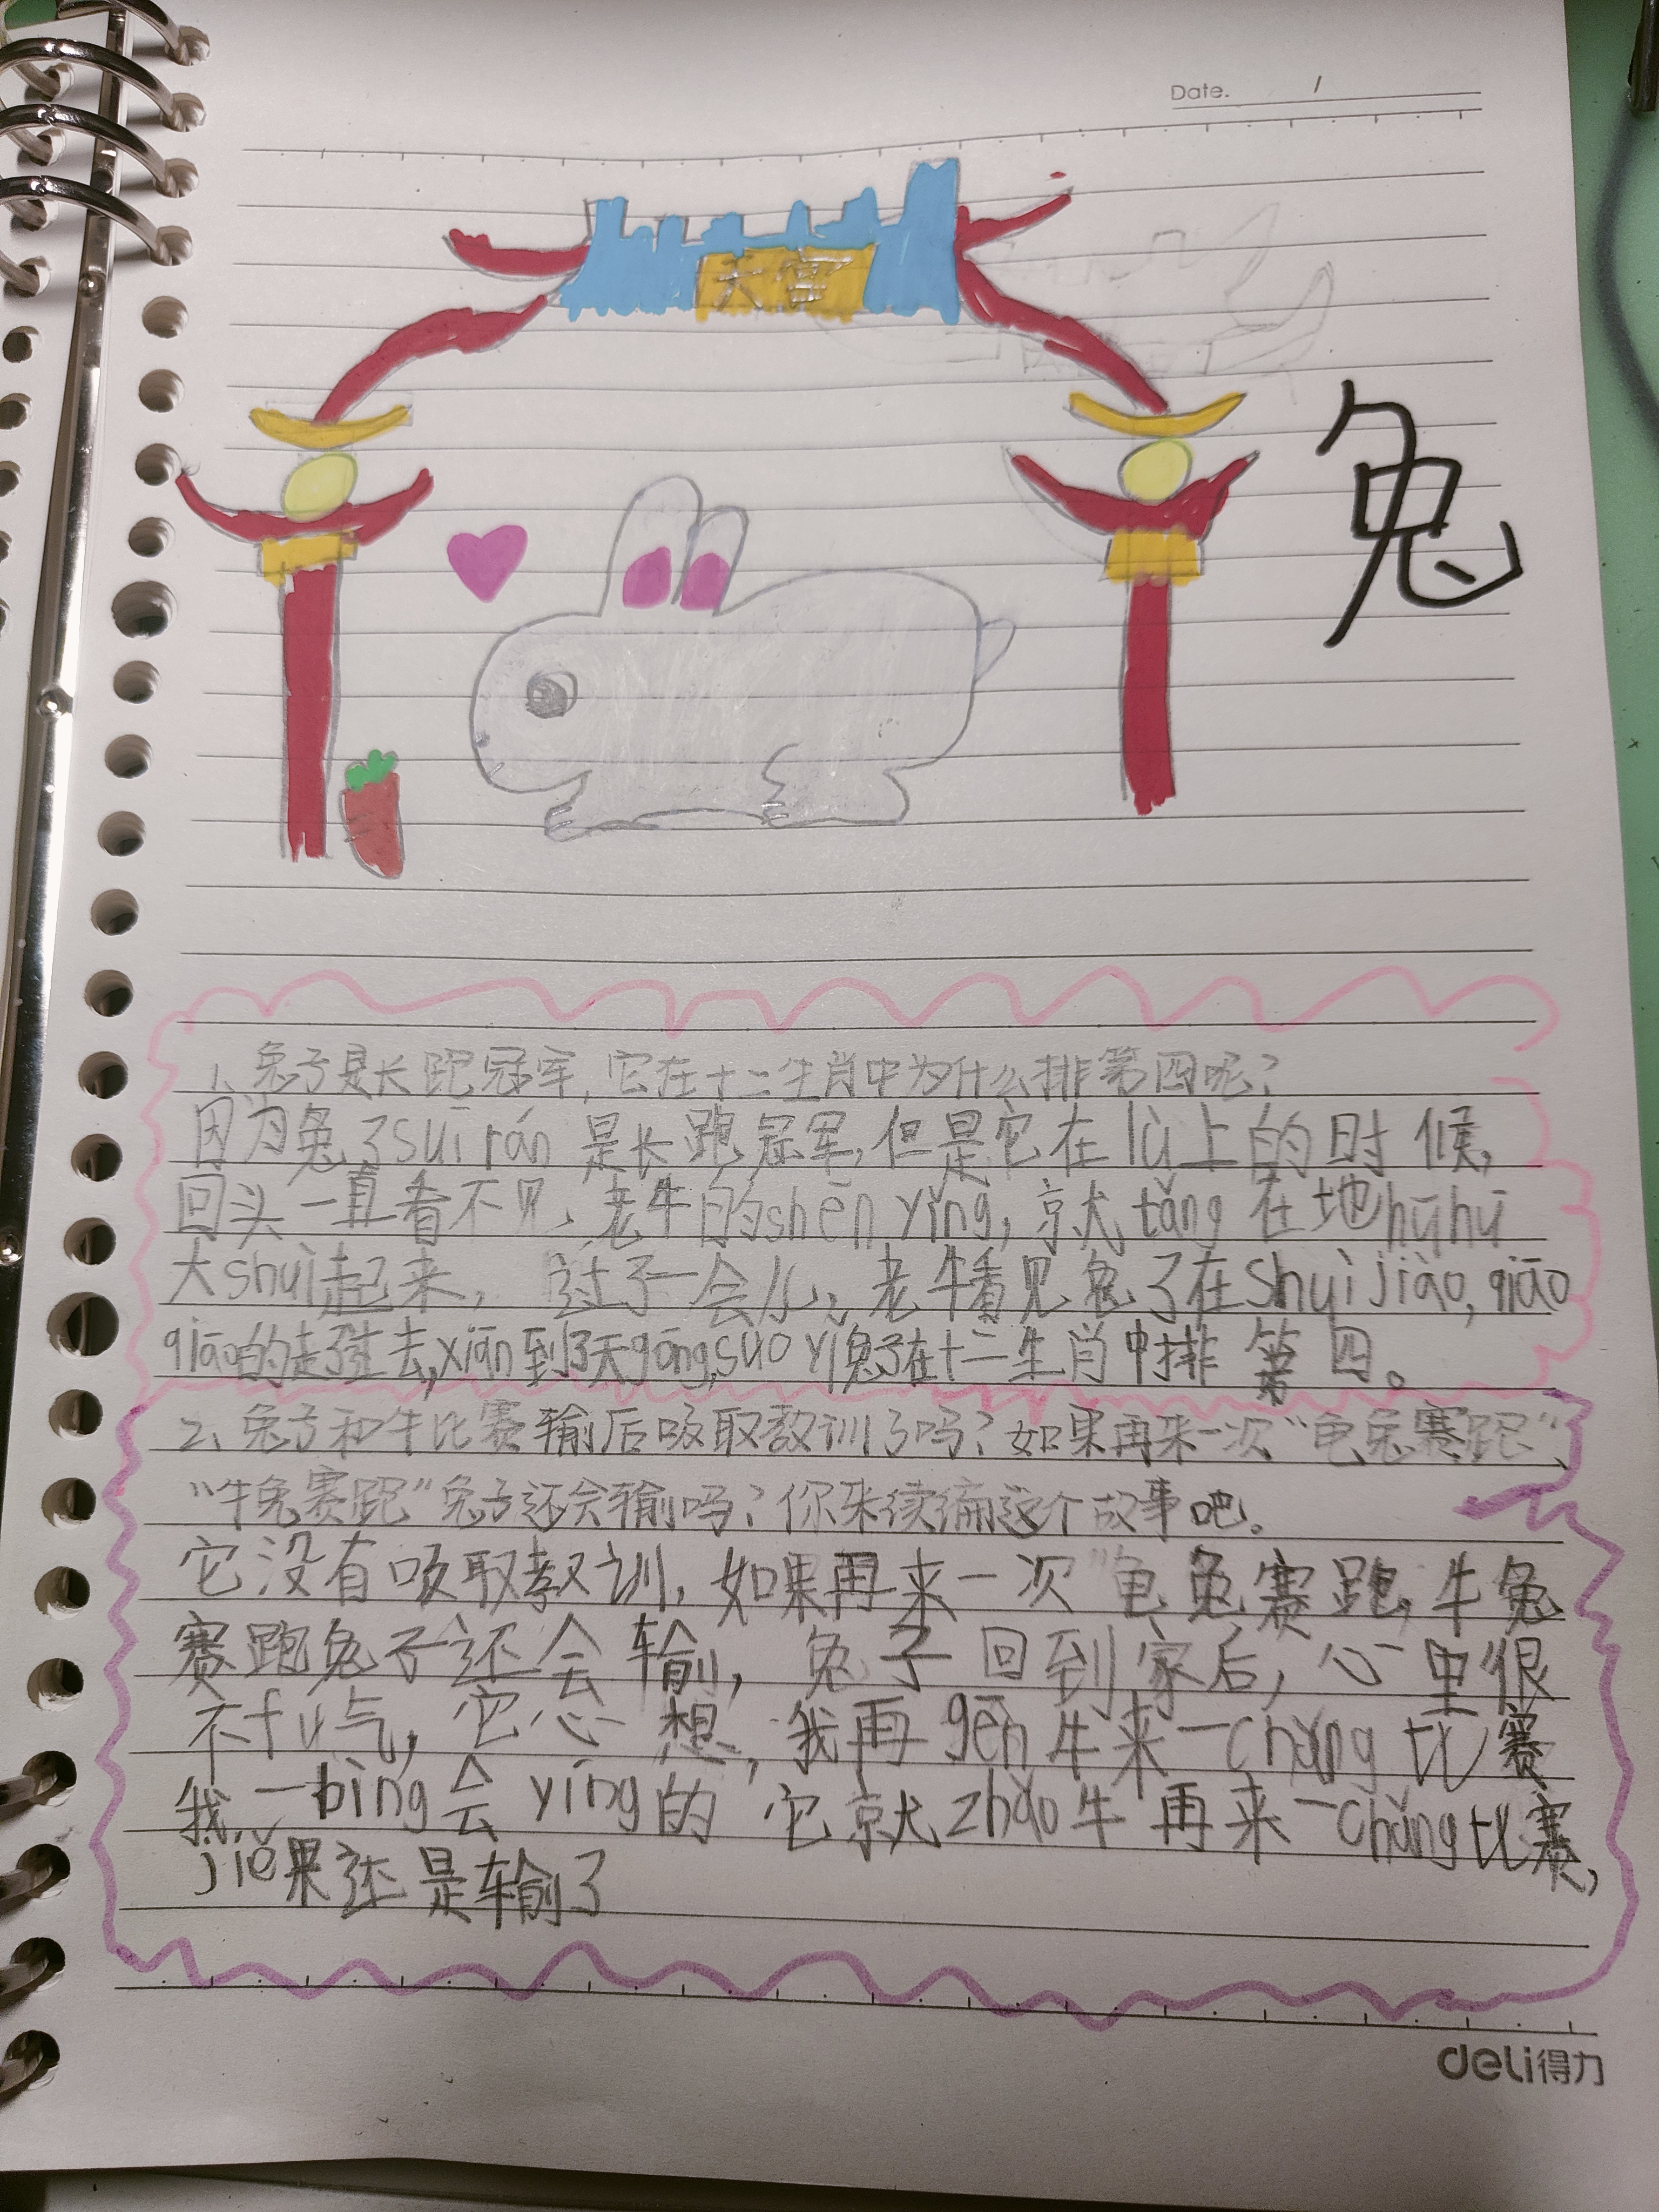 Date. /
天宫
兔
1、兔子是长跑冠军,它在十二生肖中为什么排第四呢?
因为兔子suī rán是长跑冠军,但是它在lù上的时候,
回头一直看不见、老牛的shēn yǐng,京尤tǎng在地hūhū
大shuì起来, 过了一会儿,老牛看见兔子在shuìjiào,qiāo
qiāo的走到生去,xiān到了天gōng,suǒ yǐ兔子在十二生肖中排第四。
2、兔子和牛比赛输后吸取教训了吗?如果再来一次“龟兔赛跑”、
“牛兔赛跑”兔子还会输吗?你来续编这个故事吧。
它没有吸取教训,如果再来一次“龟兔赛跑,牛兔
赛跑兔子还会输,兔子回到家后,心里很
不fú气,它心想,我再gēn牛来一chǎng比赛
我一bìng会yíng的它就zhǎo牛再来一chǎng比赛,
jiě果还是输了
deli得力